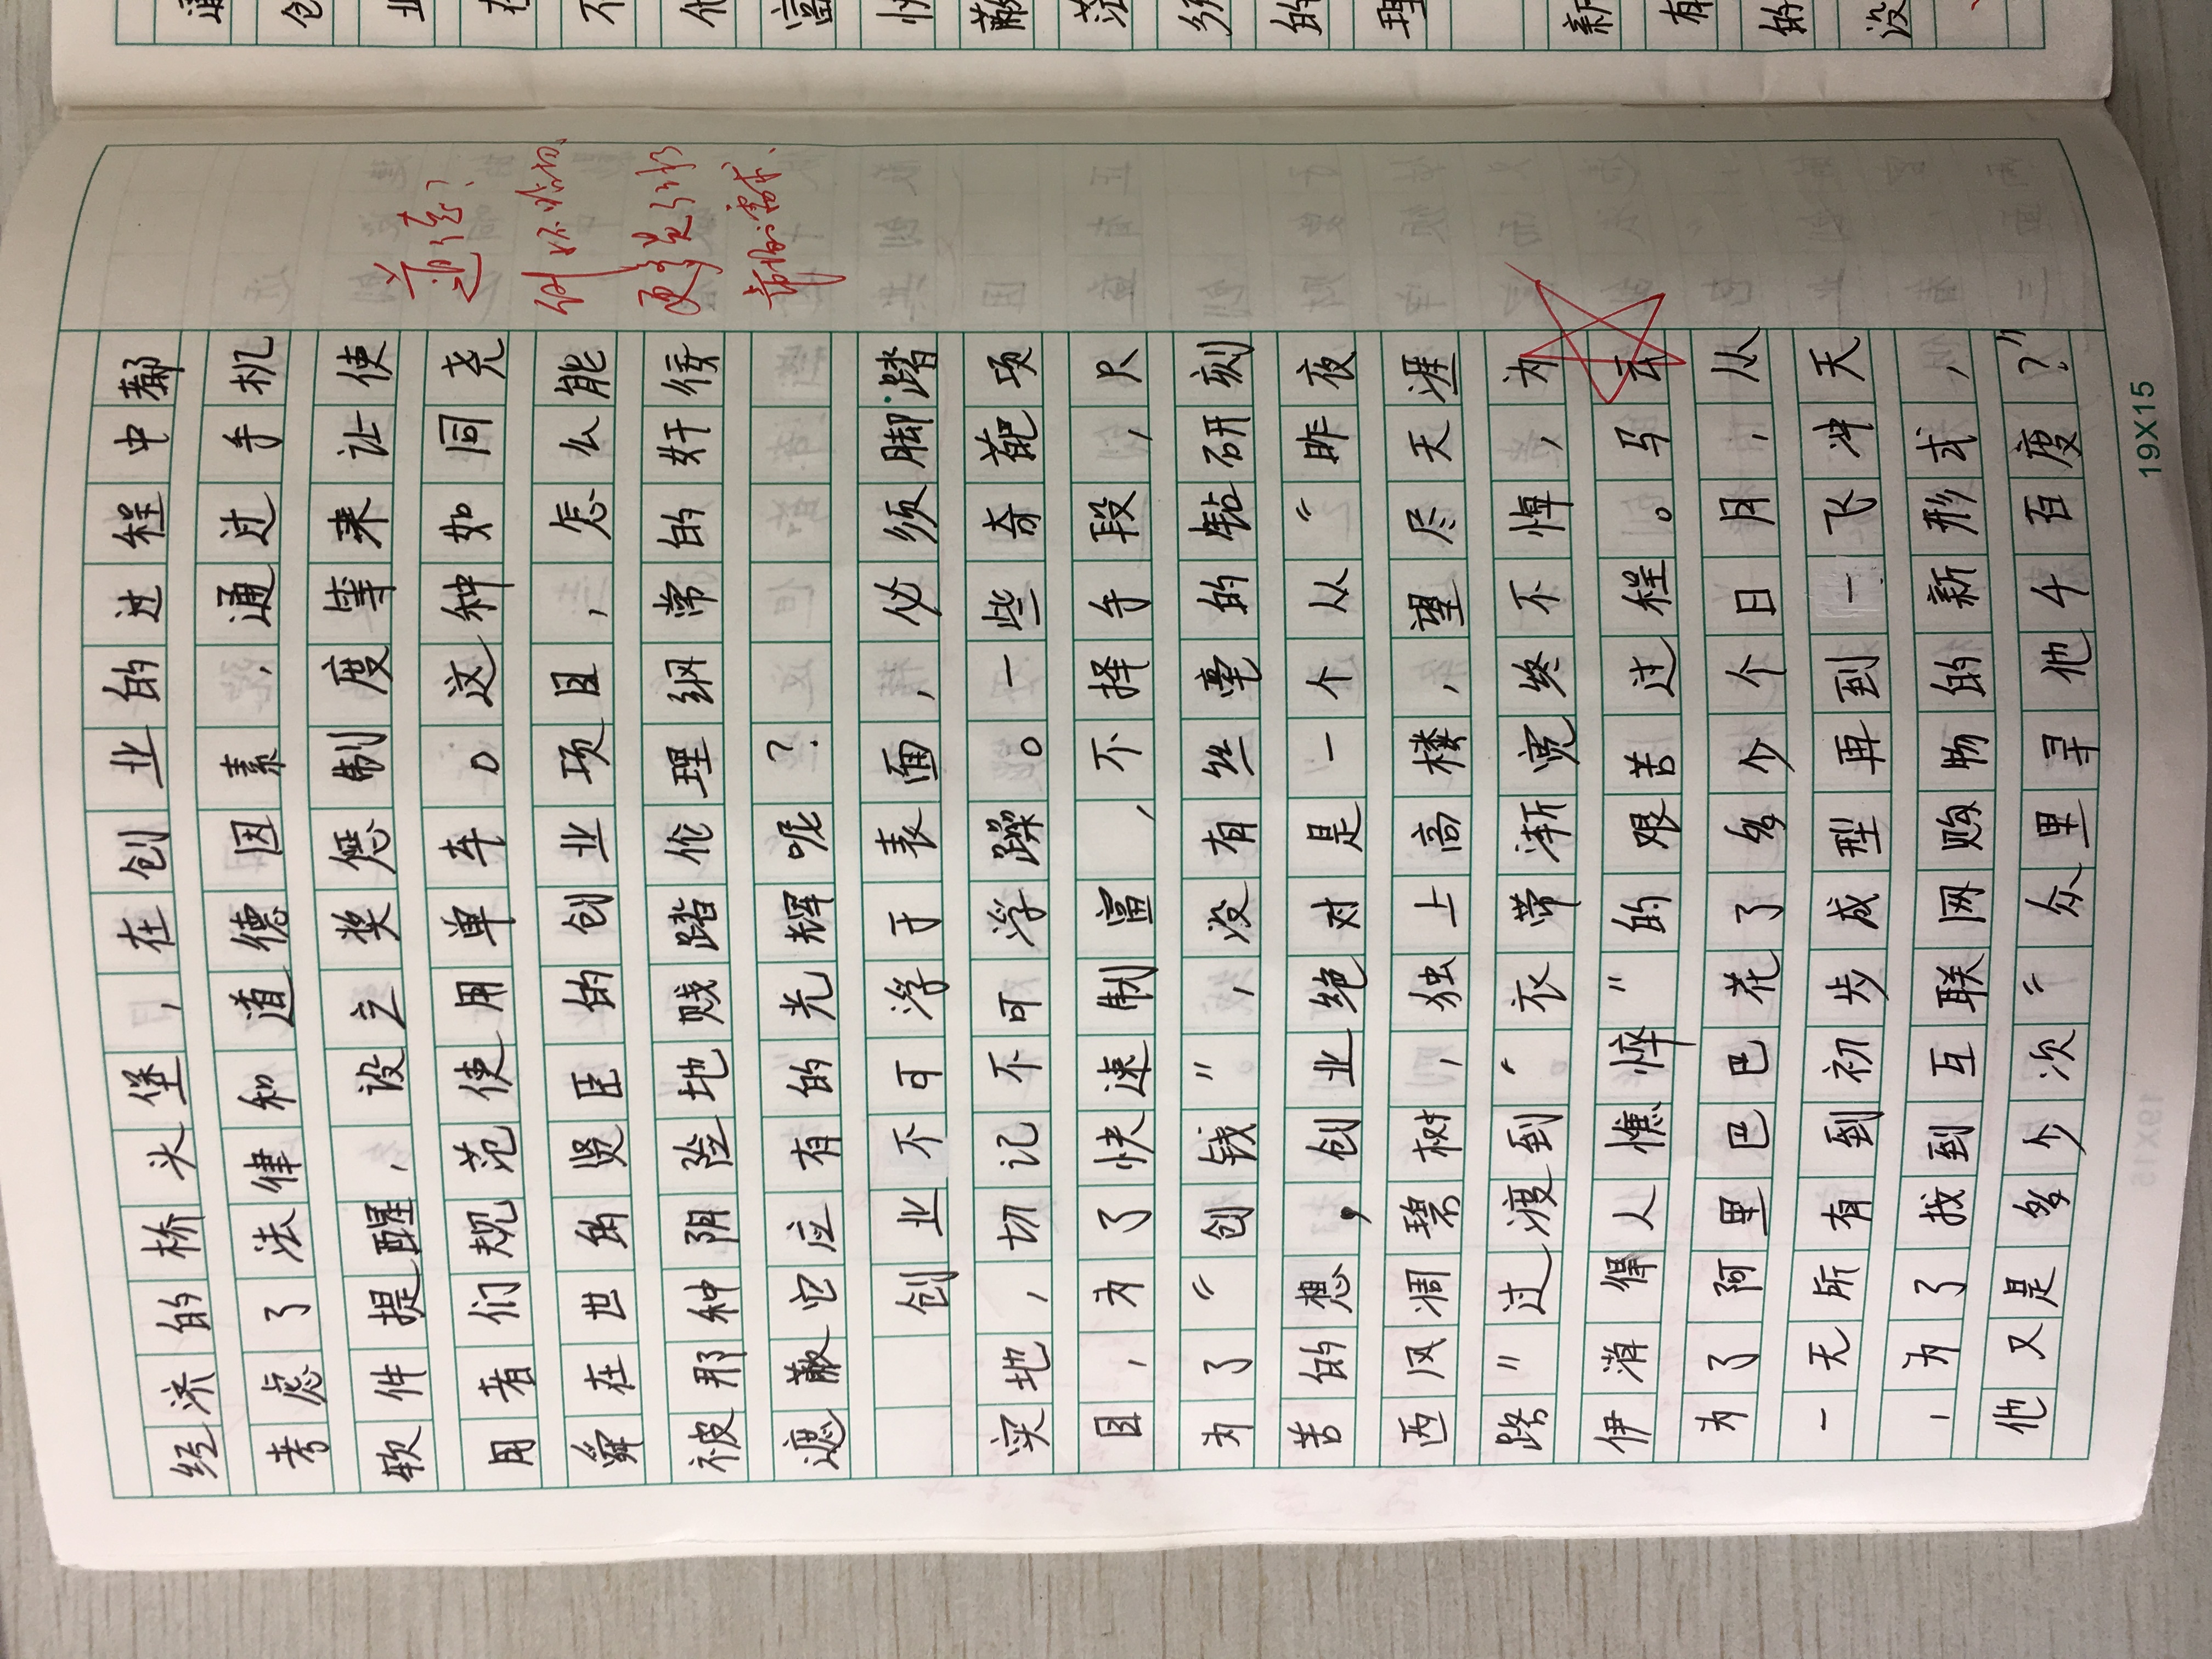 经济的桥头堡，在创业的过程中都
考虑了法律和道德因素，通过手机
软件提醒，设立奖惩制度等来让使
用者们规范使用单车。这种如同尧
舜在世的贤臣的创业项目，怎么能
被那种阴险地贱踏伦理纲常的奸佞
遮蔽它应有的光辉呢？
创业不可浮于表面，必须脚踏
实地，切记不可浮躁。一些奇葩项
目，为了快速制富，不择手段，只
为了“创钱”，没有丝毫的钻研刻
苦的想，创业绝对是一个从“昨夜
西风凋碧树，独上高楼，望尽天涯
路”过渡到“衣带渐宽终不悔，为
伊消得人憔悴”的艰苦过程。马云
为了阿里巴巴花了多少个日月，从
一无所有到初步成型再到一飞冲天
，为了找到互联网购物的新形式，
他又是多少次“众里寻他千百度？”
19X15